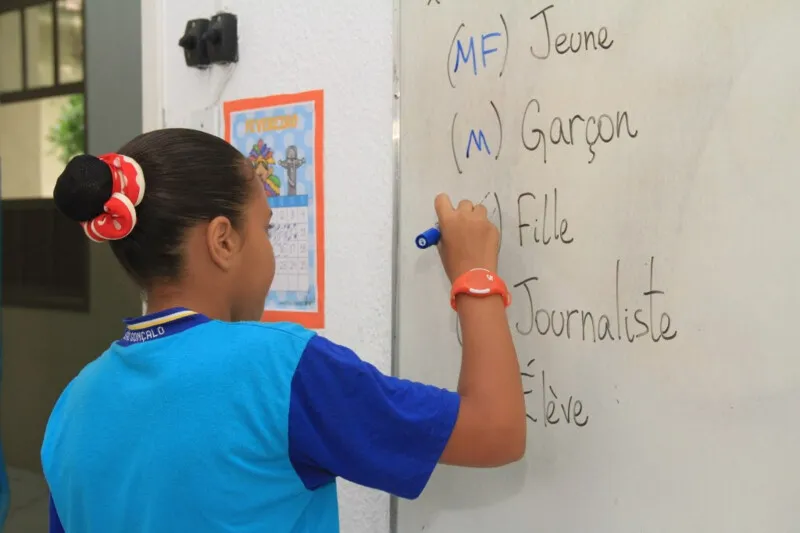 (MF) Jeune
(M) Garçon
) Fille
Journaliste
Élève
GONÇALO